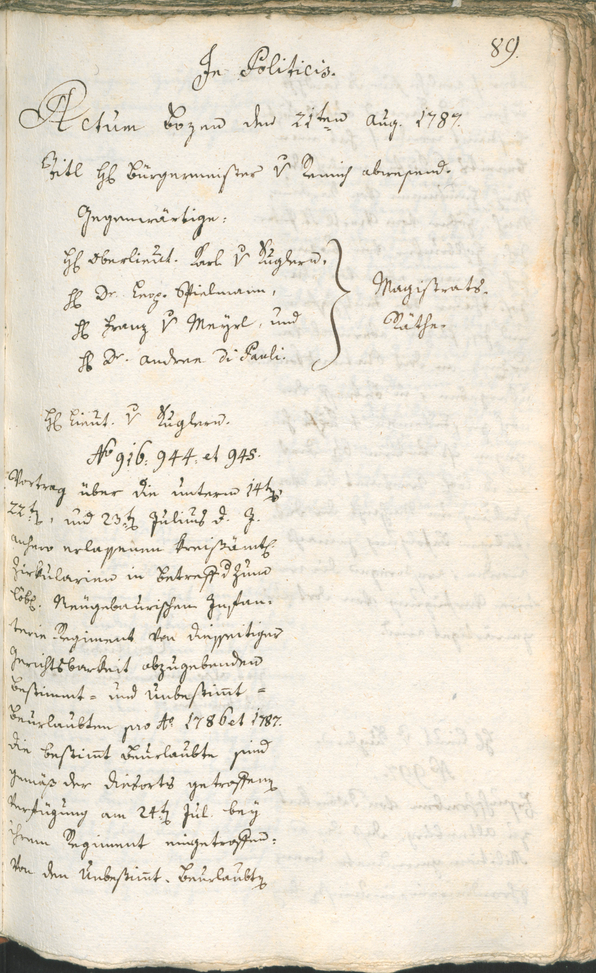 89.
In Politicis.
Actum Bozen den 21ten Aug. 1787.
Titl H: Bürgermeister v Remich abwesend.
Gegenwärtige:
H: Oberlieut. Karl v Kuglern,
H: Dr. Leop. Spielmann,
H: Franz v Meyrl, und
H: Dr. Andree Di Pauli.
Magistrats-
Räthe.
H: Lieut. v Kuglern.
No 916: 944: et 945.
Vortrag über die unterm 14t.,
22t., und 23t. Julius d. J.
anhero erlassenen kreisämtl.
Zirkularien in Betreff d zum
löbl. Neügebaurischen Infan-
terie Regiment von diesseitiger
Gerichtsbarkeit abzugebenden
Bestimmt- und Unbestimt-
Beurlaubten pro Ao 1786 et 1787.
die bestimt Beurlaubte sind
gemäß der diesorts getroffenen
Verfügung am 24t. Jul. bey
ihrem Regiment eingetroffen:
Von den Unbestimt-Beurlaubten